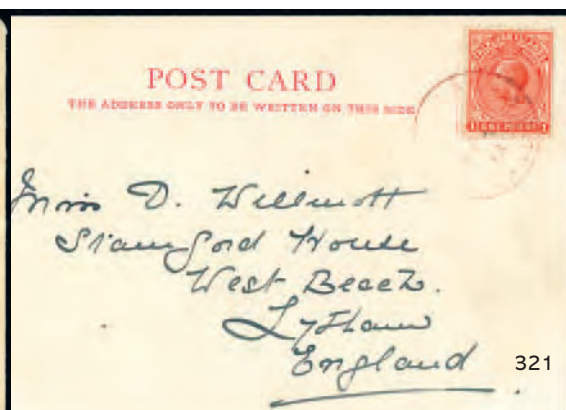 POST CARD
THE ADDRESS ONLY TO BE WRITTEN ON THIS SIDE
Miss D. Willmott
Stamford House
West Beach.
Lytham
England
321